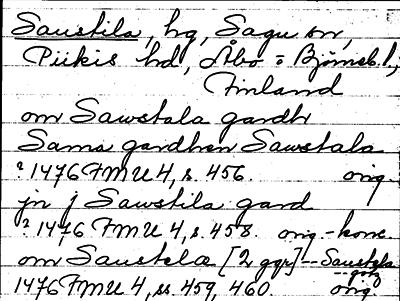 Saustila, hg, Sagu sn,
Piikis hd, Åbo = Björneb. l,
Finland
om Sawstala gardh
Sama gardhen Sawstala
? 1476 FMU 4, s. 456. orig.
jn j Sawstila gard
? 1476 FMU 4, s. 458. orig.-konc.
om Saustela [2 ggr] -- Saustela
-- gorg
1476 FMU 4, ss. 459, 460. orig.